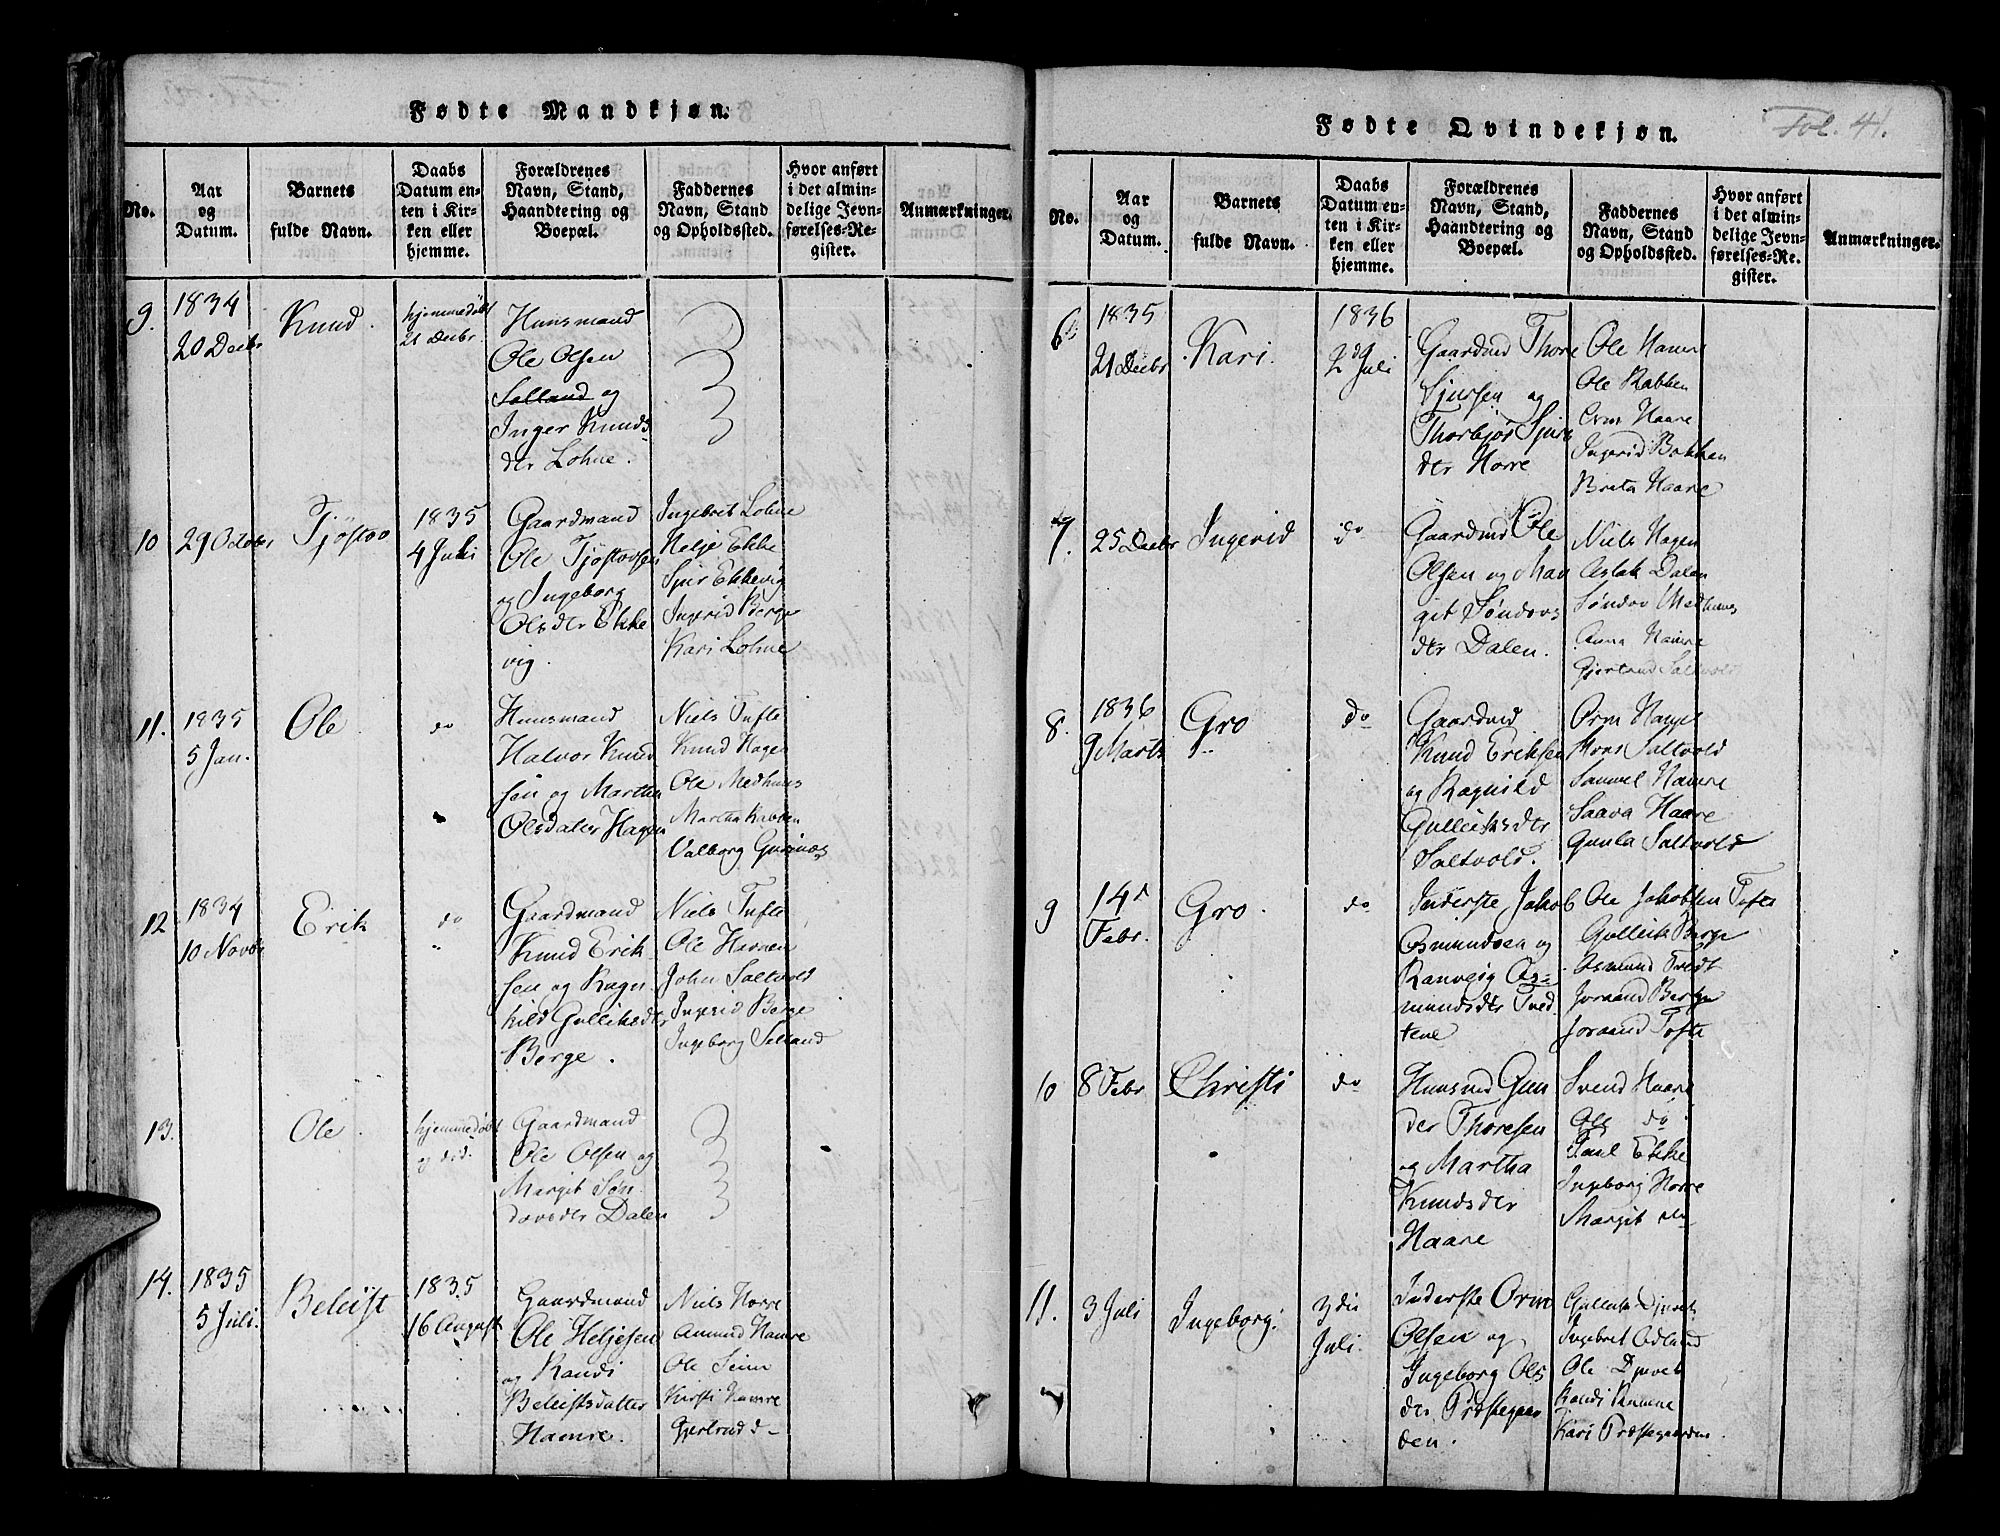 Fødte Mandkjøn.
No.
Aar
og
Datum.
Barnets
fulde Navn.
Daabs
Datum en-
ten i Kir-
ken eller
hjemme.
Forældrenes
Navn, Stand,
Haandtering og
Boepæl.
Faddernes
Navn, Stand
og Opholdssted.
Hvor anført
i det almin-
delige Jevn-
førelses-Re-
gister.
Anmærkninger.
9.
1834
20 Decbr
Knud.
hjemmedøbt
21 Decbr.
Huusmand
Ole Olsen
Selland og
Inger Knuds-
dtr Lohne.
10
29 Octobr
Tjöstov
1835
4 Juli
Gaardmand
Ole Tjöstovsen
og Ingeborg
Olsdtr Ekke
vig.
Ingebret Lohne
Helje Ekke
Sjur Ekkevig
Ingerid Berge
Kari Lohne
11.
1835
5 Jan.
Ole
do
Huusmand
Halvor Knud
sen og Martha
Olsdatter Hagen
Niels Tufte
Knud Hagen
Ole Medhuus
Martha Rabben
Valborg
12
1834
10 Novbr
Erik
do
Gaardmand
Knud Erik
sen og Ragn
hild Gulliksdtr
Berge.
Niels Tufte
Ole
John Saltvold
Ingrid Berge
Ingeborg Selland
13.
Ole.
hjemmedøbt
og död.
Gaardmand
Ole Olsen og
Margit Søn
dovsdtr Dalen
14.
1835
5 Juli.
Beleist
1835
16 August
Gaardmand
Ole Heljesen
og Randi
Beleistsdatter
Hamre.
Niels Horre
Amund Hamre
Ole Seim
Kirsti Hamre
Gjertrud d-
Fødte Qvindekjøn.
Fol. 41.
No.
Aar
og
Datum.
Barnets
fulde Navn.
Daabs
Datum en-
ten i Kir-
ken eller
hjemme.
Forældrenes
Navn, Stand,
Haandtering og
Boepæl.
Faddernes
Navn, Stand
og Opholdssted.
Hvor anført
i det almin-
delige Jevn-
førelses-Re-
gister.
Anmærkninger.
6
1835
21 Decbr
Kari.
1836
2d Juli
Gaardmd Thore
Sjursen og
Thorbjør Sjurs
dtr Horre
Ole Hamre
Ole Rabben
Orm Haare
Ingerid Bakken
Brita Haare
7.
25 Decbr
Ingerid
do
Gaardmd Ole
Olsen og Mar
git Søndovs
dtr Dalen.
Niels Hagen
Aslak Dalen
Søndov Medhuus
Anna Hamre
Gjertrud Saltvold
8.
1836
9 Marts
Gro
do
Gaardmd
Knud Eriksen
og Ragnild
Gulleiksdtr
Saltvold.
Orm
Saltvold
Samuel Hamre
Saava Haare
Gunla Saltvold
9
14d
Febr.
Gro.
do
Inderste Jakob
Osmundsen og
Ranveig Os-
mundsdtr Tved
tene
Ole Jakobsen Tofte
Gulleik Berge
Osmund Tvedt
Joraand Berge
Joraand Tofte
10
8 Febr
Christi
do
Huusmd Gun
der Thoresen
og Martha
Knudsdtr
Haare
Svend Haare
Ole do
Paul Ekke
Ingeborg Horre
Margit
11.
3 Juli
Ingeborg.
3die
Juli.
Inderste Orm
Olsen og
Ingeborg Ols
dtr Præstegaar
den.
Gulleik Djuvet
Ingebret Ødland
Ole Djuvet
Randi Hamre
Kari Præstegaarden